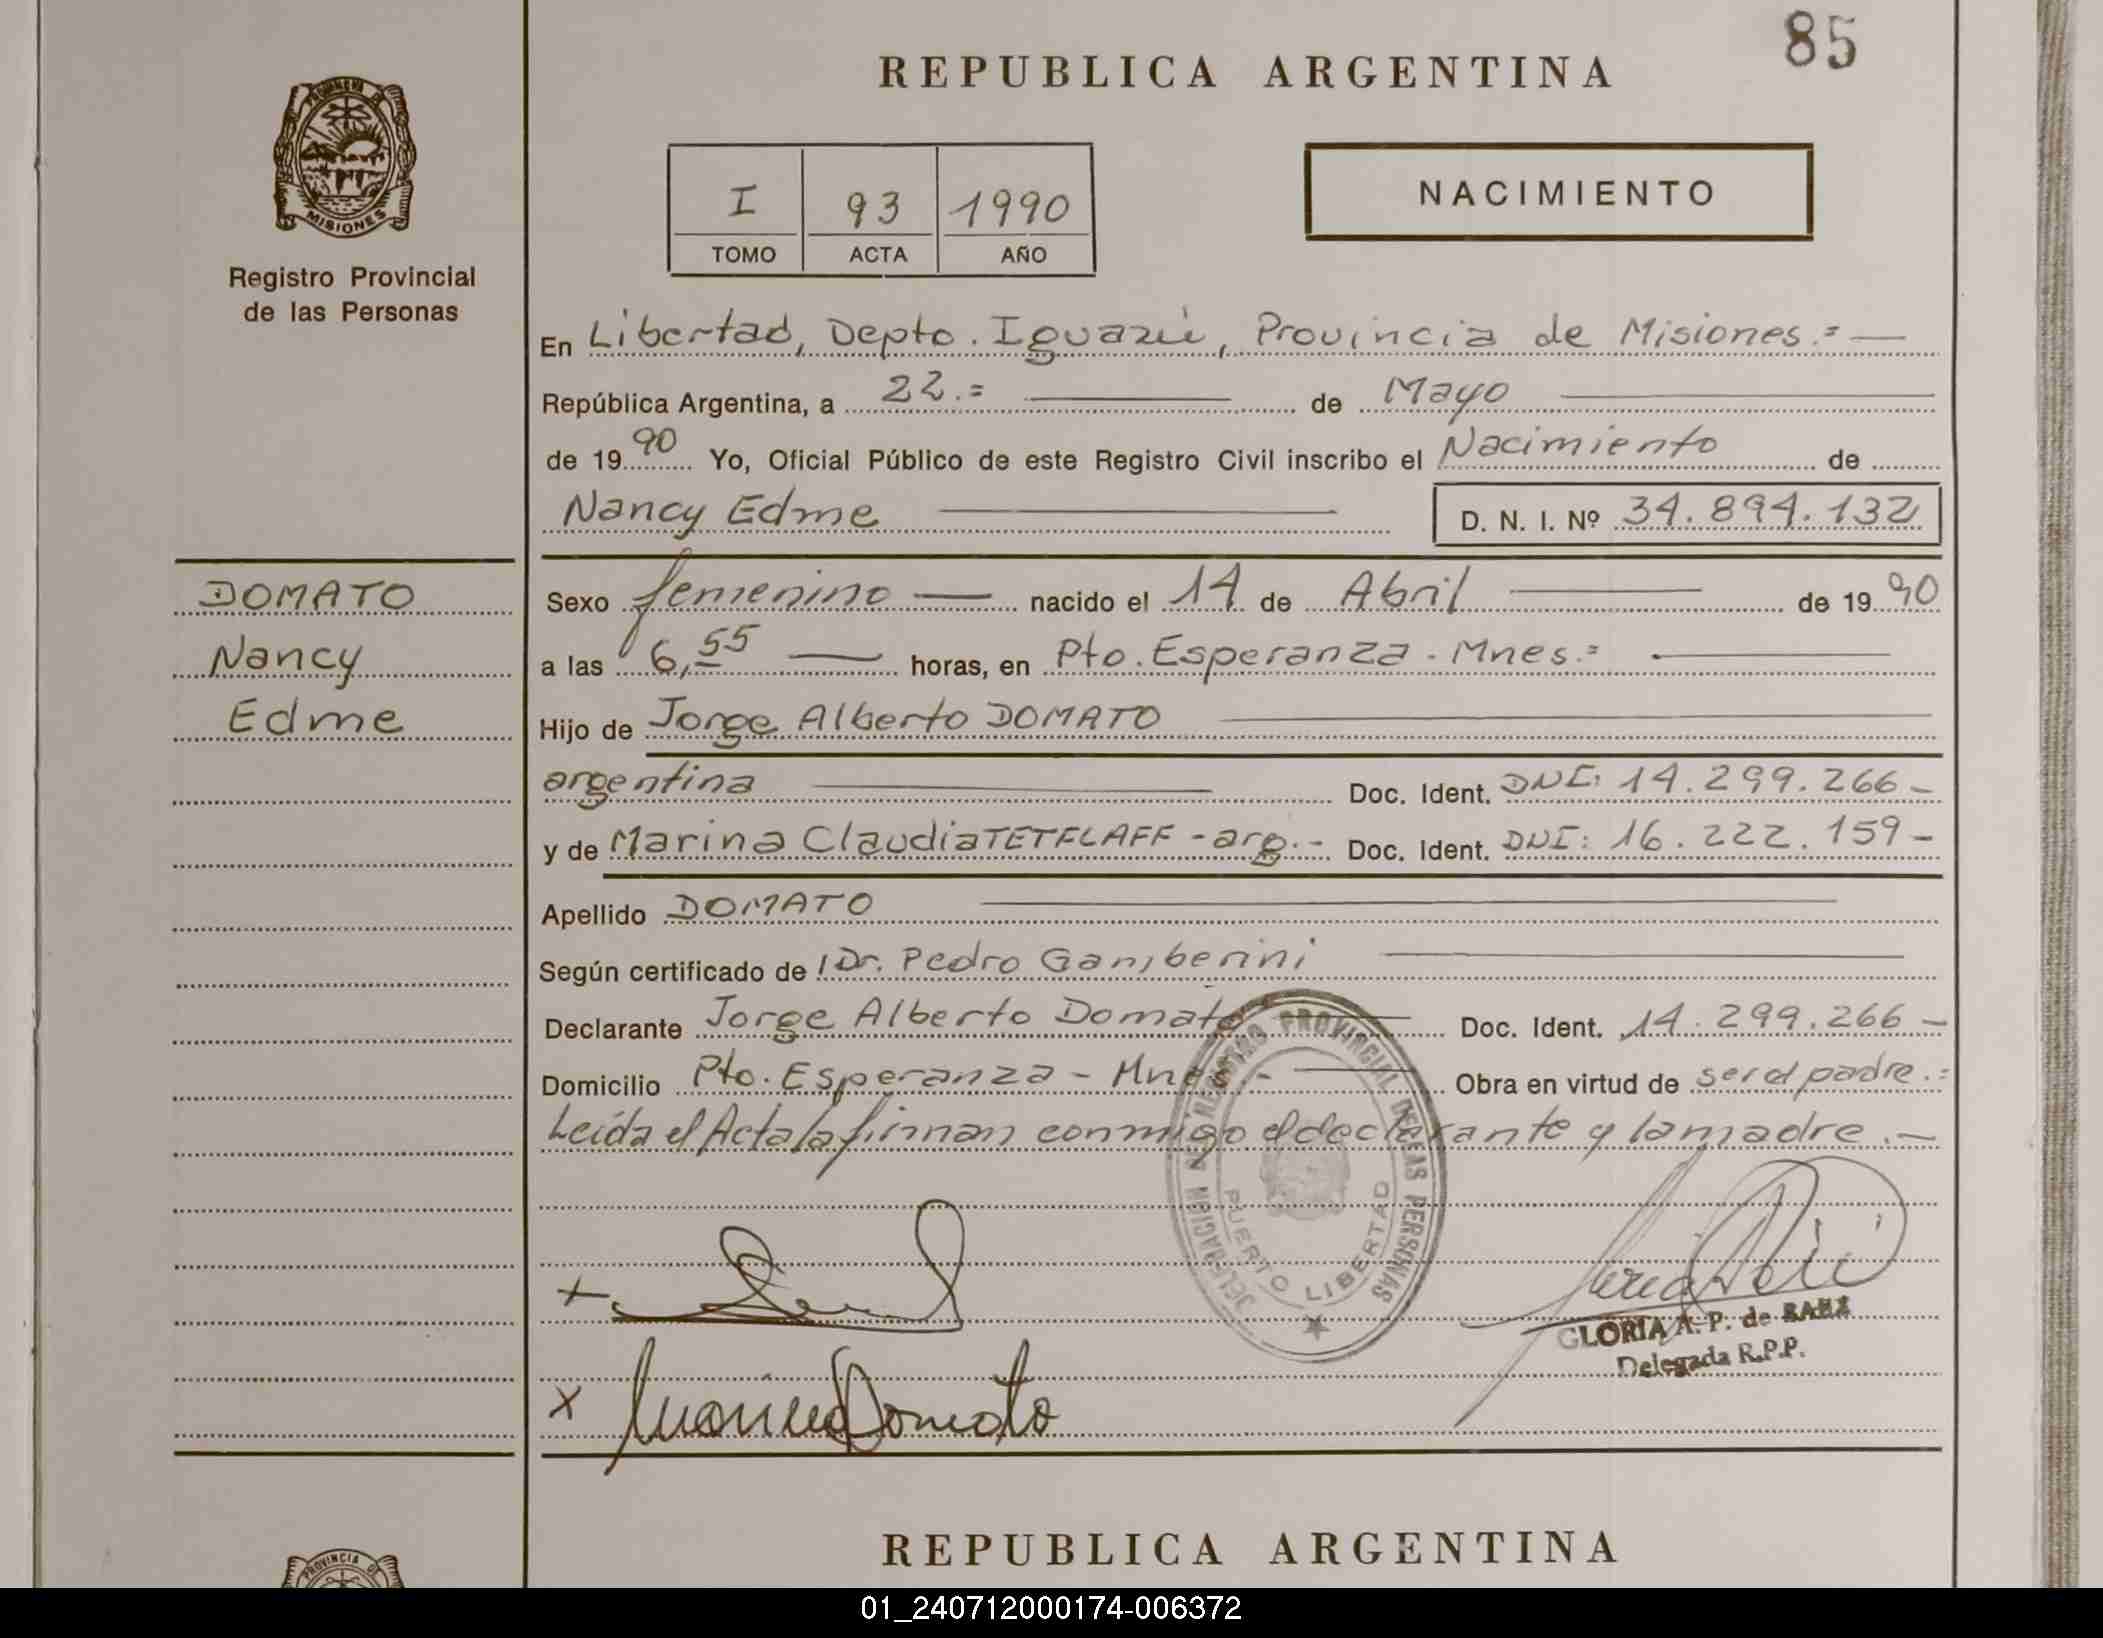 85
REPUBLICA ARGENTINA
PROVINCIA DE
MISIONES
Registro Provincial
de las Personas
I 93 1990
TOMO ACTA AÑO
NACIMIENTO
En Libertad, Depto. Iguazú, Provincia de Misiones.=
República Argentina, a 22.= de Mayo
de 1990 Yo, Oficial Público de este Registro Civil inscribo el Nacimiento de
Nancy Edme D. N. I. Nº 34.894.132
DOMATO
Nancy
Edme
Sexo femenino nacido el 14 de Abril de 1990
a las 6,55 horas, en Pto. Esperanza - Mnes.=
Hijo de Jorge Alberto DOMATO
argentina Doc. Ident. DNI: 14.299.266-
y de Marina Claudia TETFLAFF - arg.- Doc. Ident. DNI: 16.222.159-
Apellido DOMATO
Según certificado de Dr. Pedro Gamberini
Declarante Jorge Alberto Domato Doc. Ident. 14.299.266-
Domicilio Pto. Esperanza - Mnes.- Obra en virtud de ser el padre.=
Leída el Acta la firman conmigo el declarante y la madre.-
DELEGACION DEL REGISTRO PROVINCIAL DE LAS PERSONAS
PUERTO LIBERTAD
GLORIA A. P. de SAEZ
Delegada R.P.P.
x Marina Domato
REPUBLICA ARGENTINA
PROVINCIA DE
01_240712000174-006372